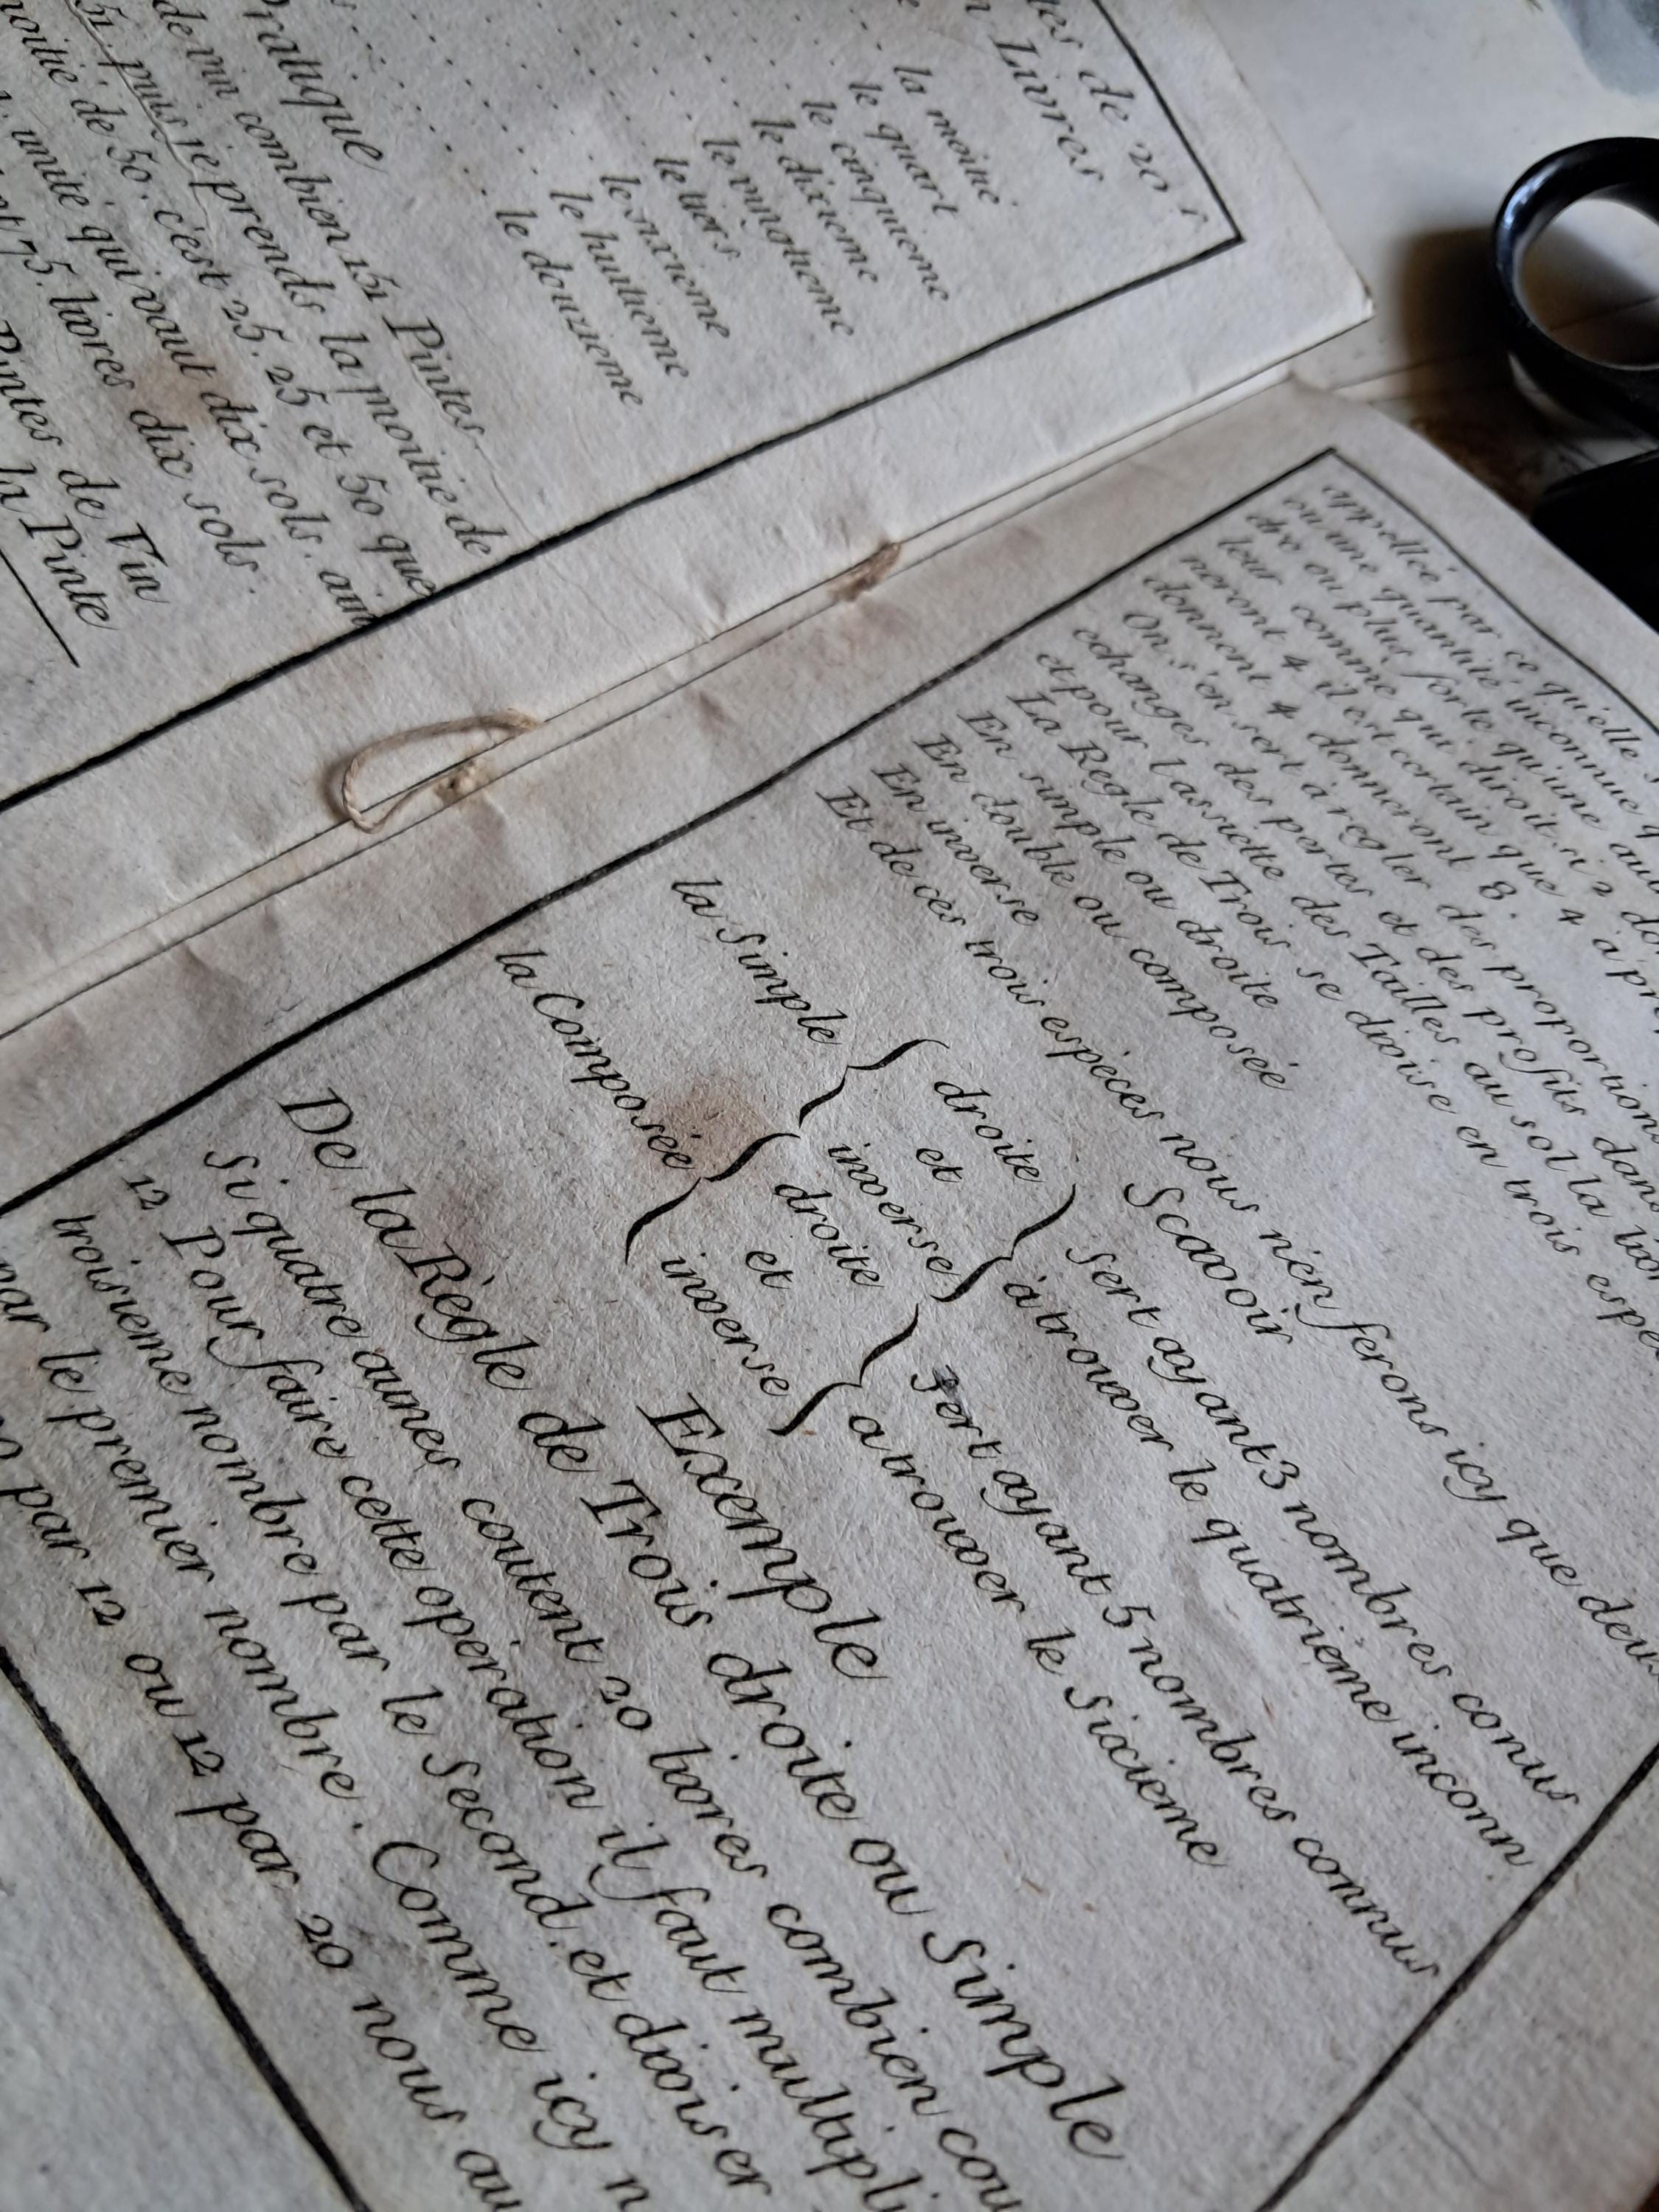 tes de 20 s
n Livres
la moitié
le quart
le cinquieme
le dixieme
le vingtieme
le tiers
le sixieme
le huitieme
le douzieme
Pratique
de vin combien 151 Pintes
51. puis je prends la moitié de
moitié de 50. c'est 25. 25 et 50 que
unité qui vaut dix sols. ain
et 75. livres dix sols.
Pintes de Vin
la Pinte
appellée par ce qu'elle s
ou une quantité inconnue q
dre ou plus forte qu'une aut
tour comme qui diroit si 2 don
neront 4 il est certain que 4 à pre
donnent 4 donneront 8.
On s'en sert à regler des proportions
echanges des pertes et des profits dans
et pour l'assiette des Tailles au sol la livr
La Regle de Trois se divise en trois espe
En simple ou droite
En double ou composée
En inverse
Et de ces trois espèces nous n'en ferons icy que deux
Scavoir
la Simple droite et inverse Sert ayant 3 nombres conus
à trouver le quatrième inconn
la Composée droite et inverse Sert ayant 5 nombres connus
a trouver le Sixieme
Exemple
De la Règle de Trois droite ou Simple
Si quatre aunes coutent 20 livres combien cou
12 Pour faire cette operation il faut multipli
troisieme nombre par le Second, et diviser
par le premier nombre. Comme icy n
par 12 ou 12 par 20 nous au